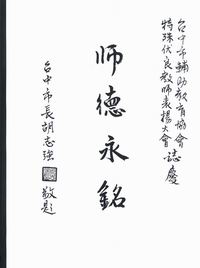 台中市輔助教育協會
特殊優良教師表揚大會 誌慶
師德永銘
台中市長胡志強 敬題